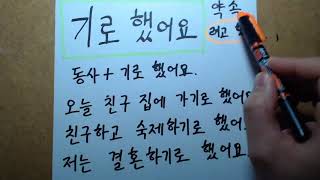 기로 했어요
약속
려고
동사 + 기로 했어요.
오늘 친구 집에 가기로 했어요
친구하고 숙제하기로 했어요
저는 결혼하기로 했어요